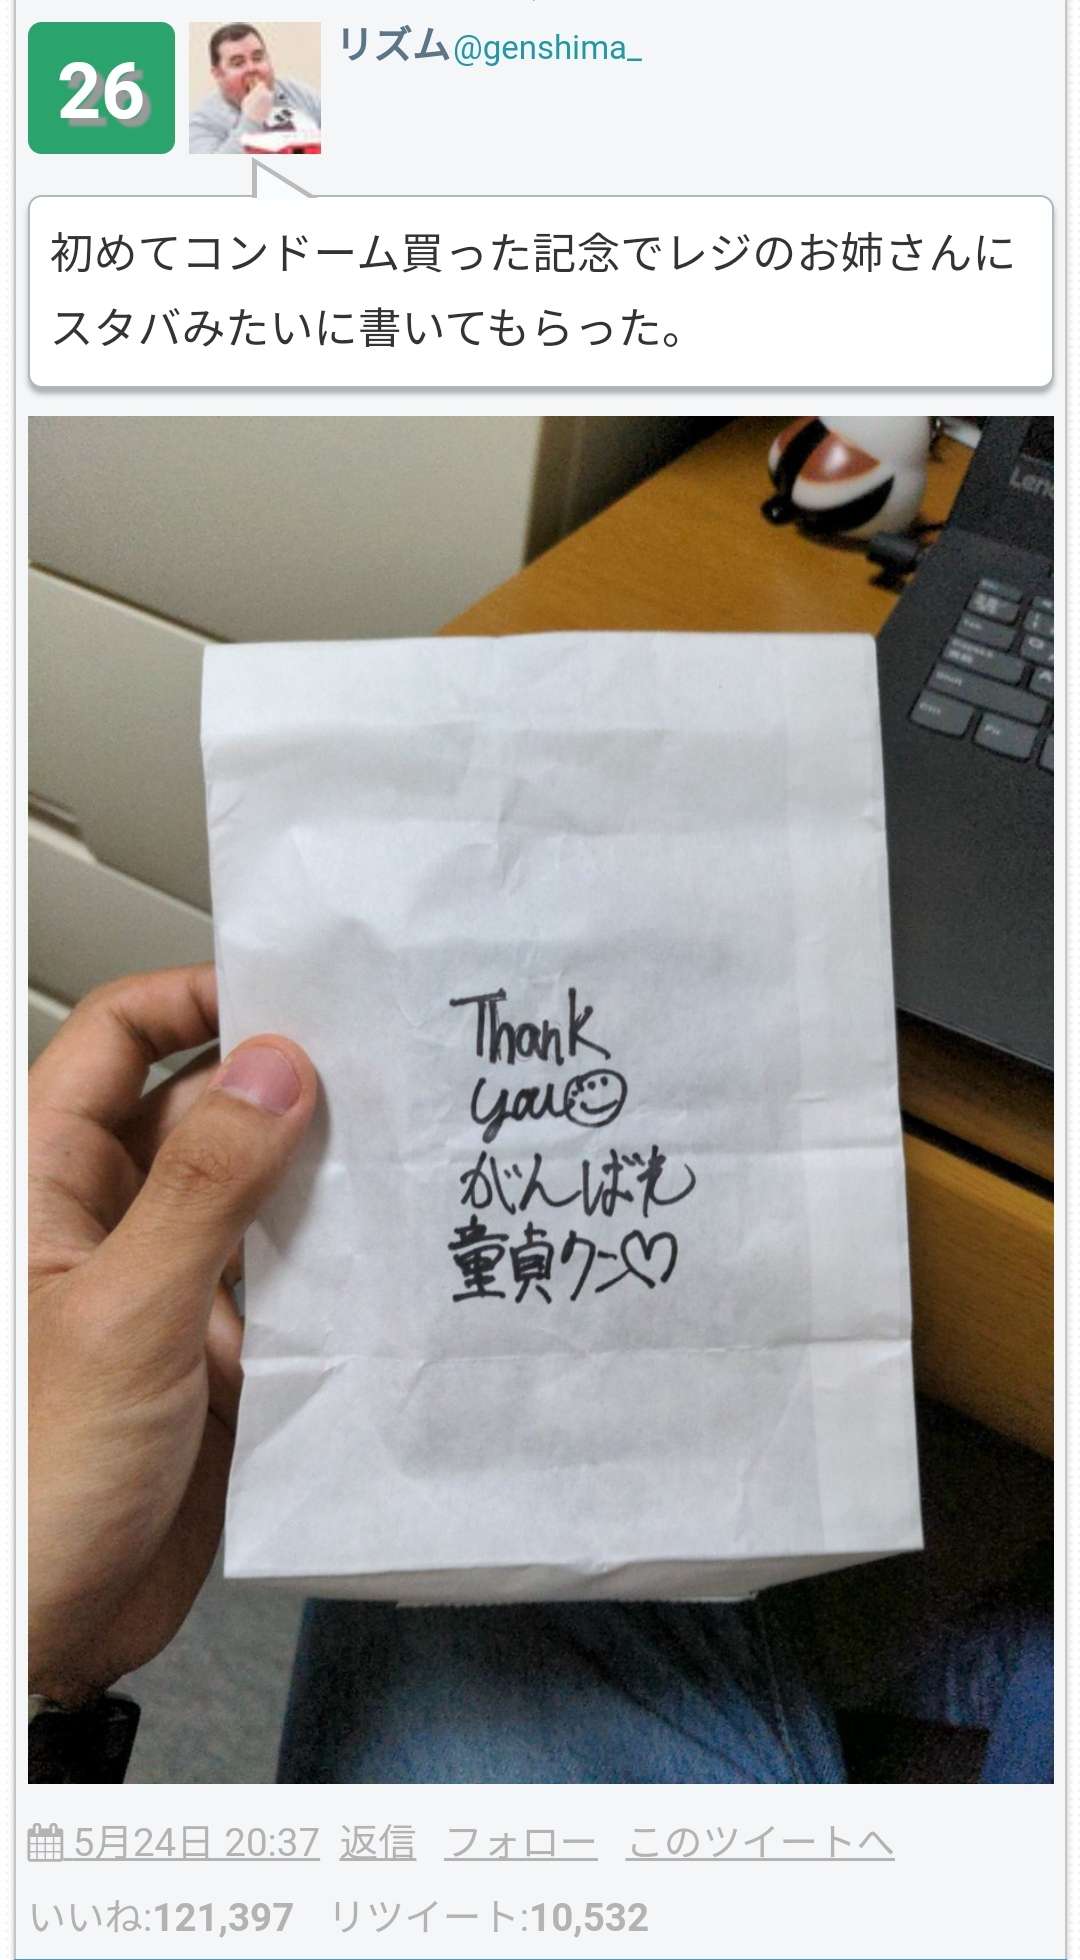 26
リズム@genshima_
初めてコンドーム買った記念でレジのお姉さんに
スタバみたいに書いてもらった。
Thank
you
がんばれ
童貞クン♡
5月24日 20:37 返信 フォロー このツイートへ
いいね:121,397 リツイート:10,532